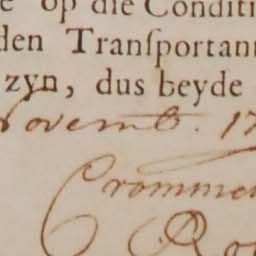 e op die Conditi
den Tranſportan
zyn, dus beyde
Novemb. 17
Cromme
Ro